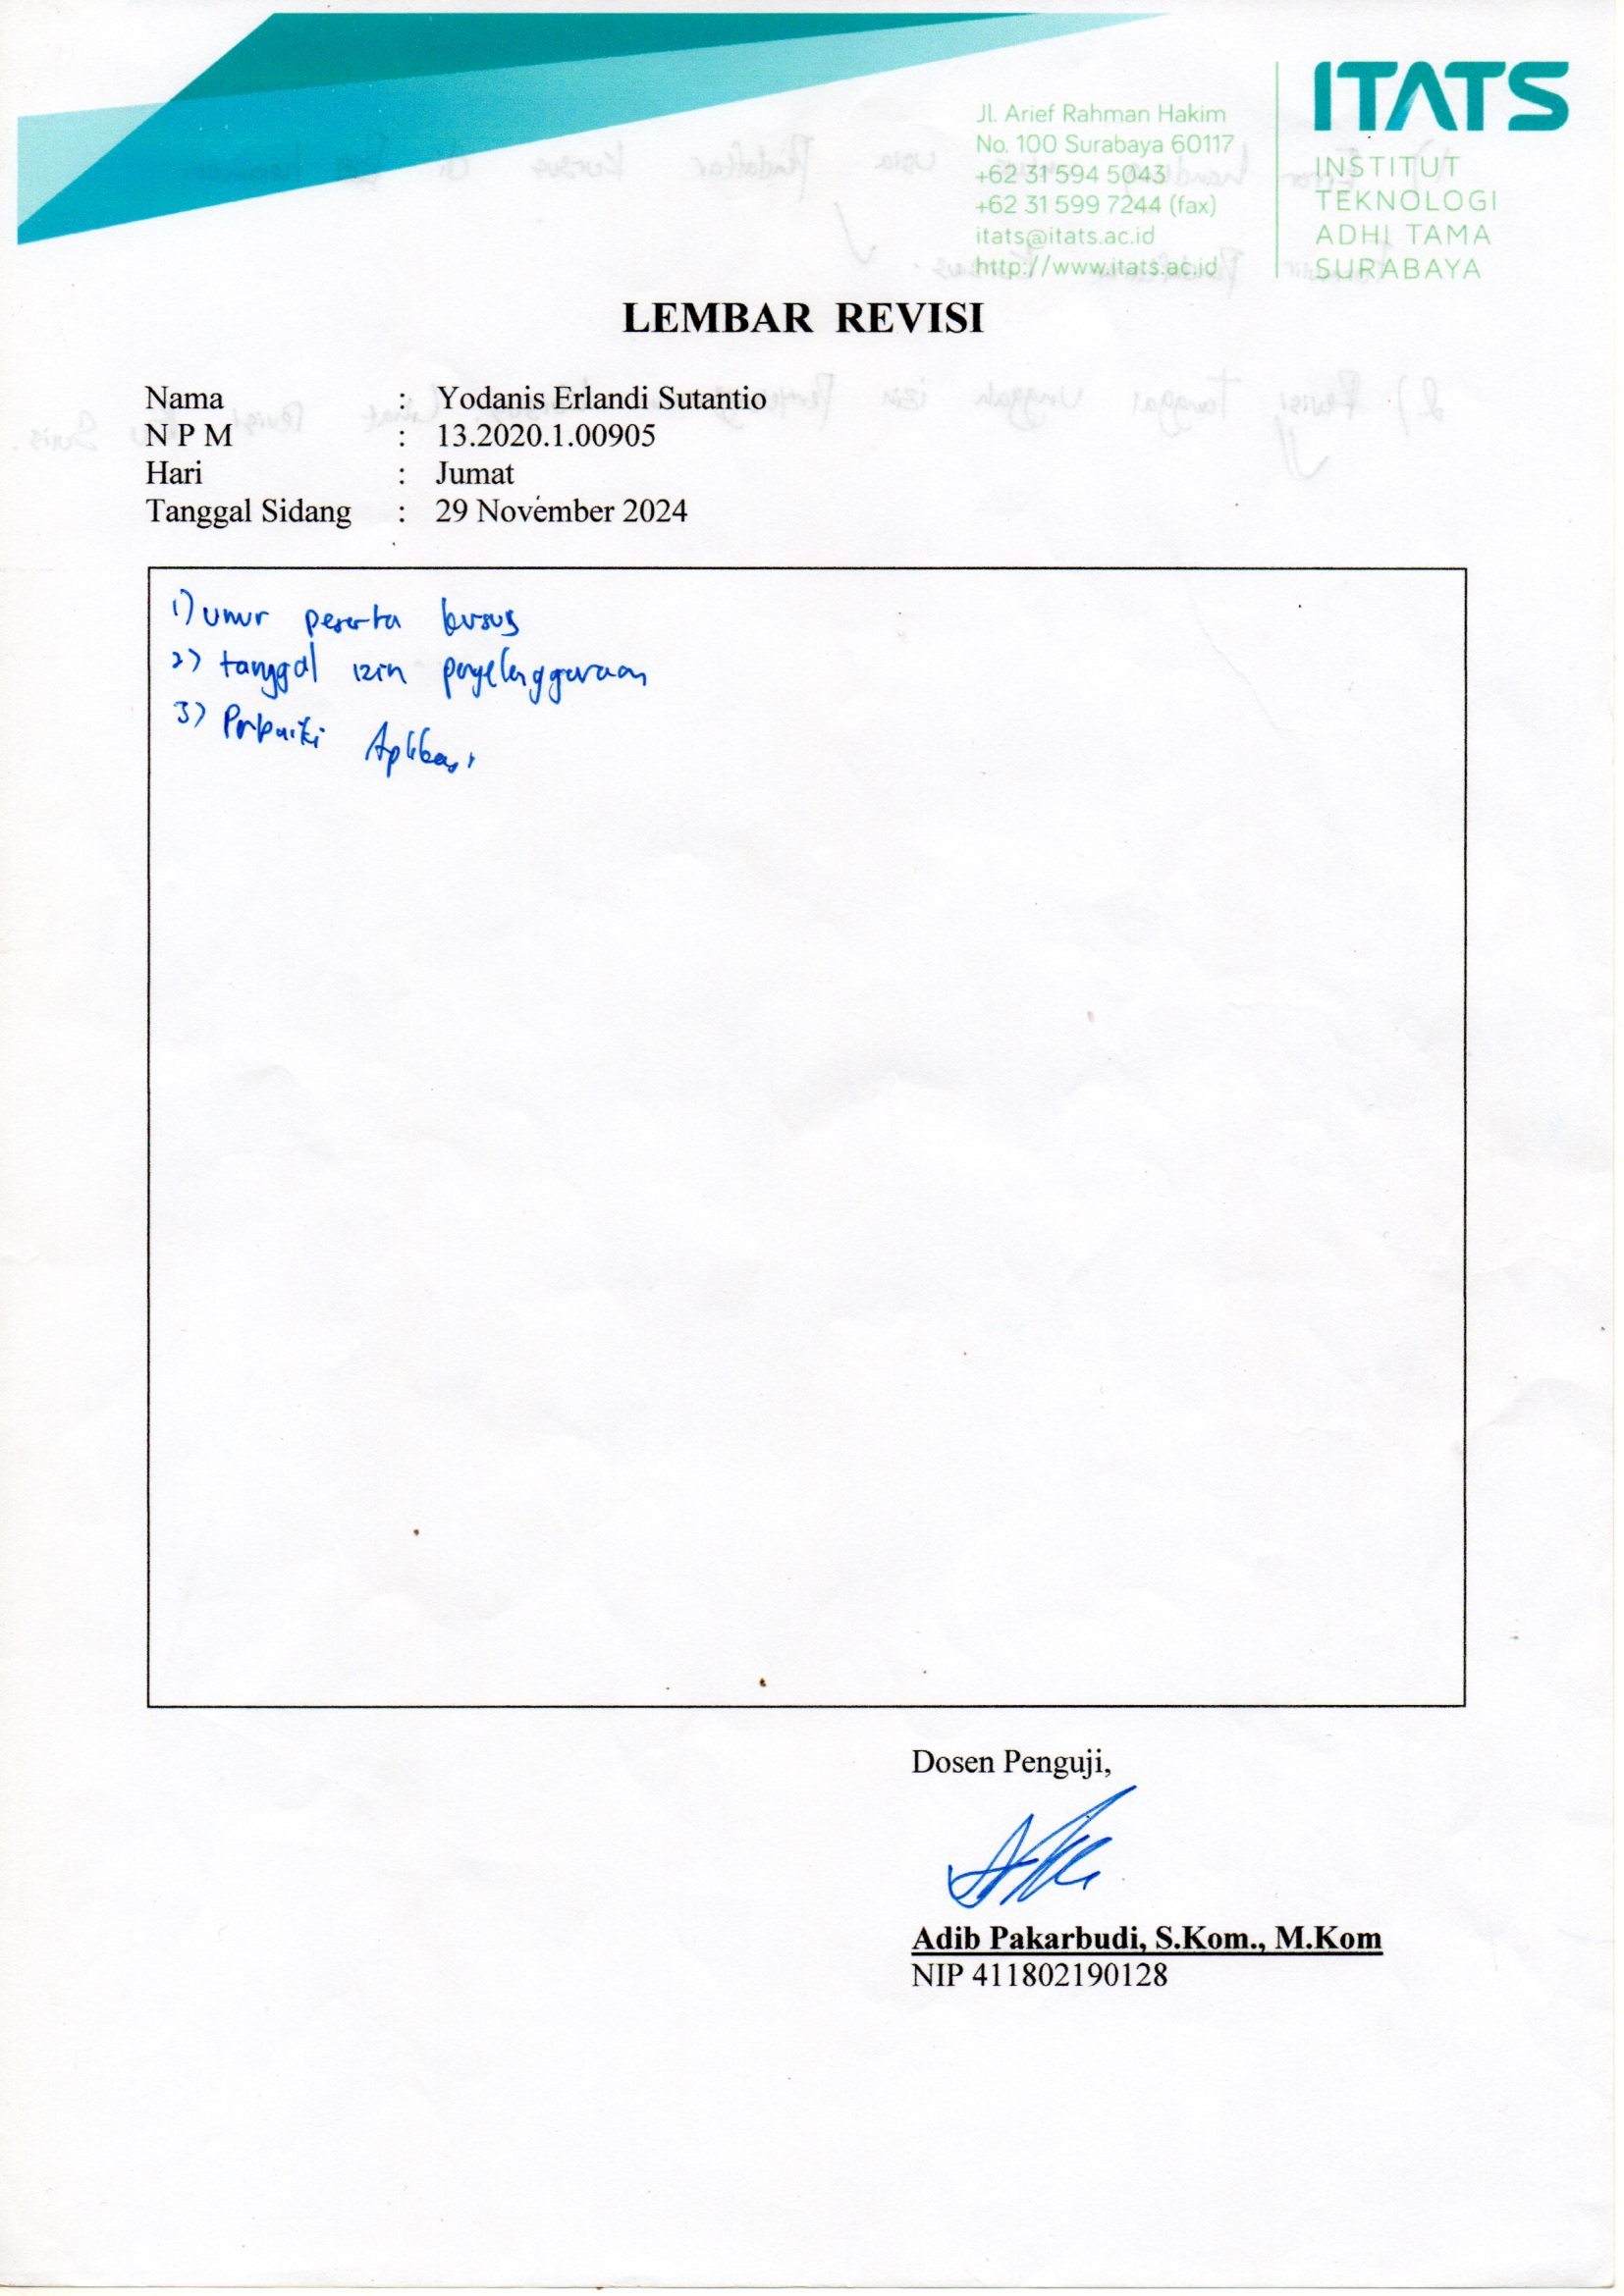 ITATS
Jl. Arief Rahman Hakim
No. 100 Surabaya 60117
+62 31 594 5043
+62 31 599 7244 (fax)
itats@itats.ac.id
http://www.itats.ac.id
INSTITUT
TEKNOLOGI
ADHI TAMA
SURABAYA
LEMBAR REVISI
Nama : Yodanis Erlandi Sutantio
N P M : 13.2020.1.00905
Hari : Jumat
Tanggal Sidang : 29 November 2024
1) umur peserta kursus
2) tanggal izin penyelenggaraan
3) Perbaiki Aplikasi
Dosen Penguji,
Adib Pakarbudi, S.Kom., M.Kom
NIP 411802190128